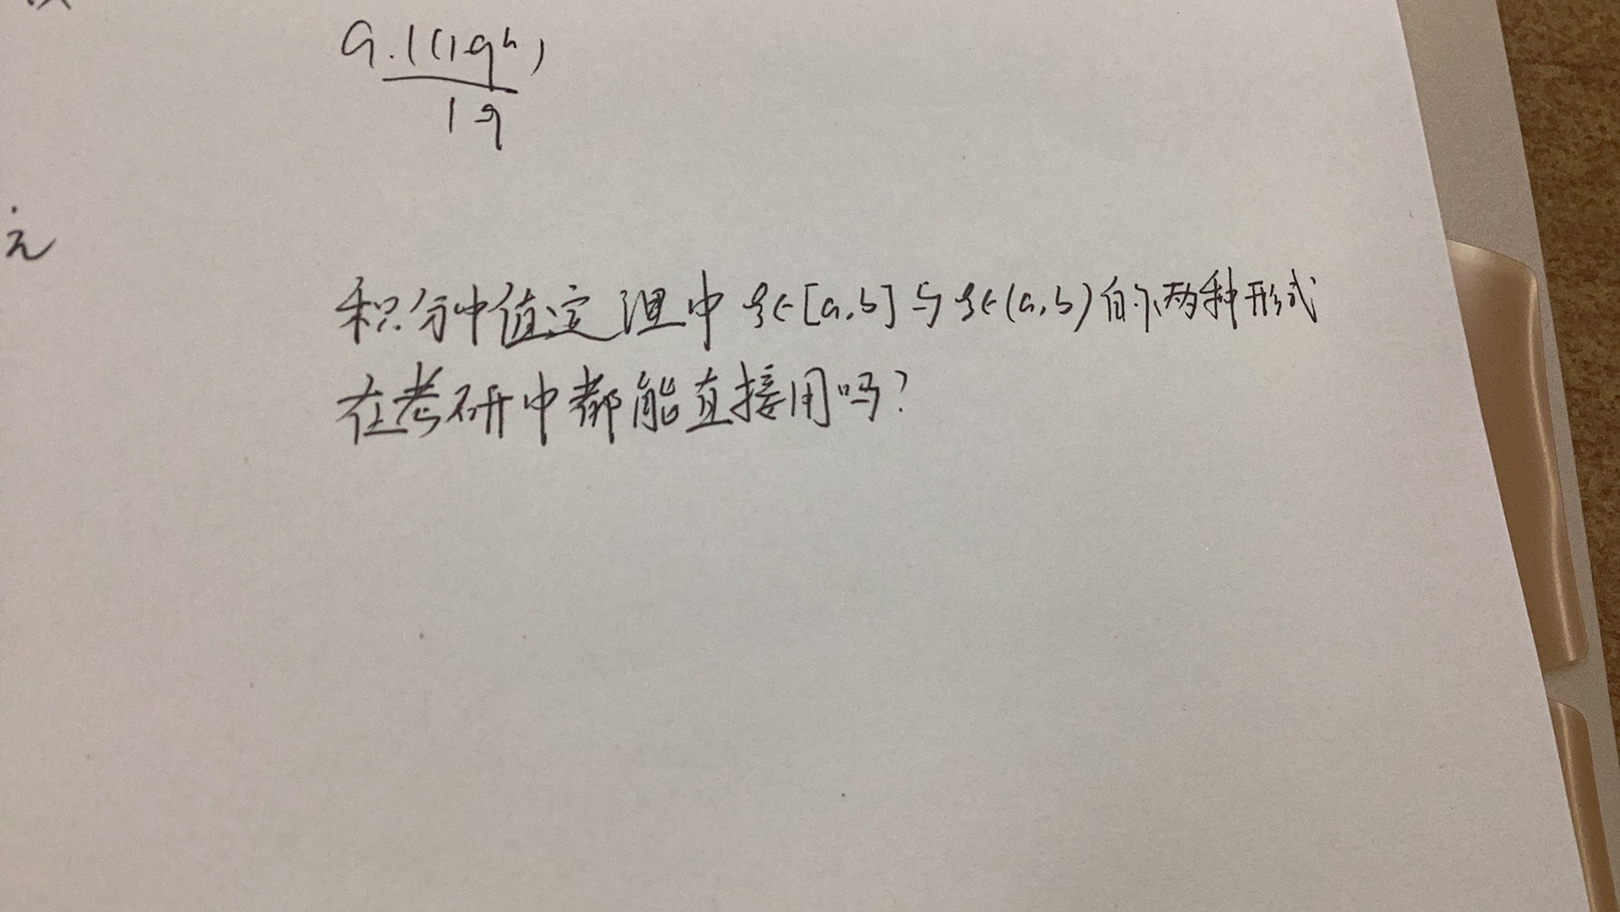 a.1(1q^n)
1q
元
积分中值定理中 ξ∈[a,b]与ξ∈(a,b)的两种形式
在考研中都能直接用吗?